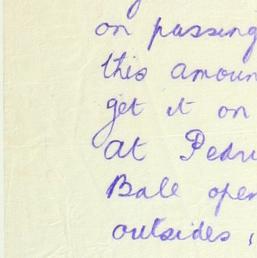 on passing
this amoun
get it on
at Pedr
Bale open
outsides,